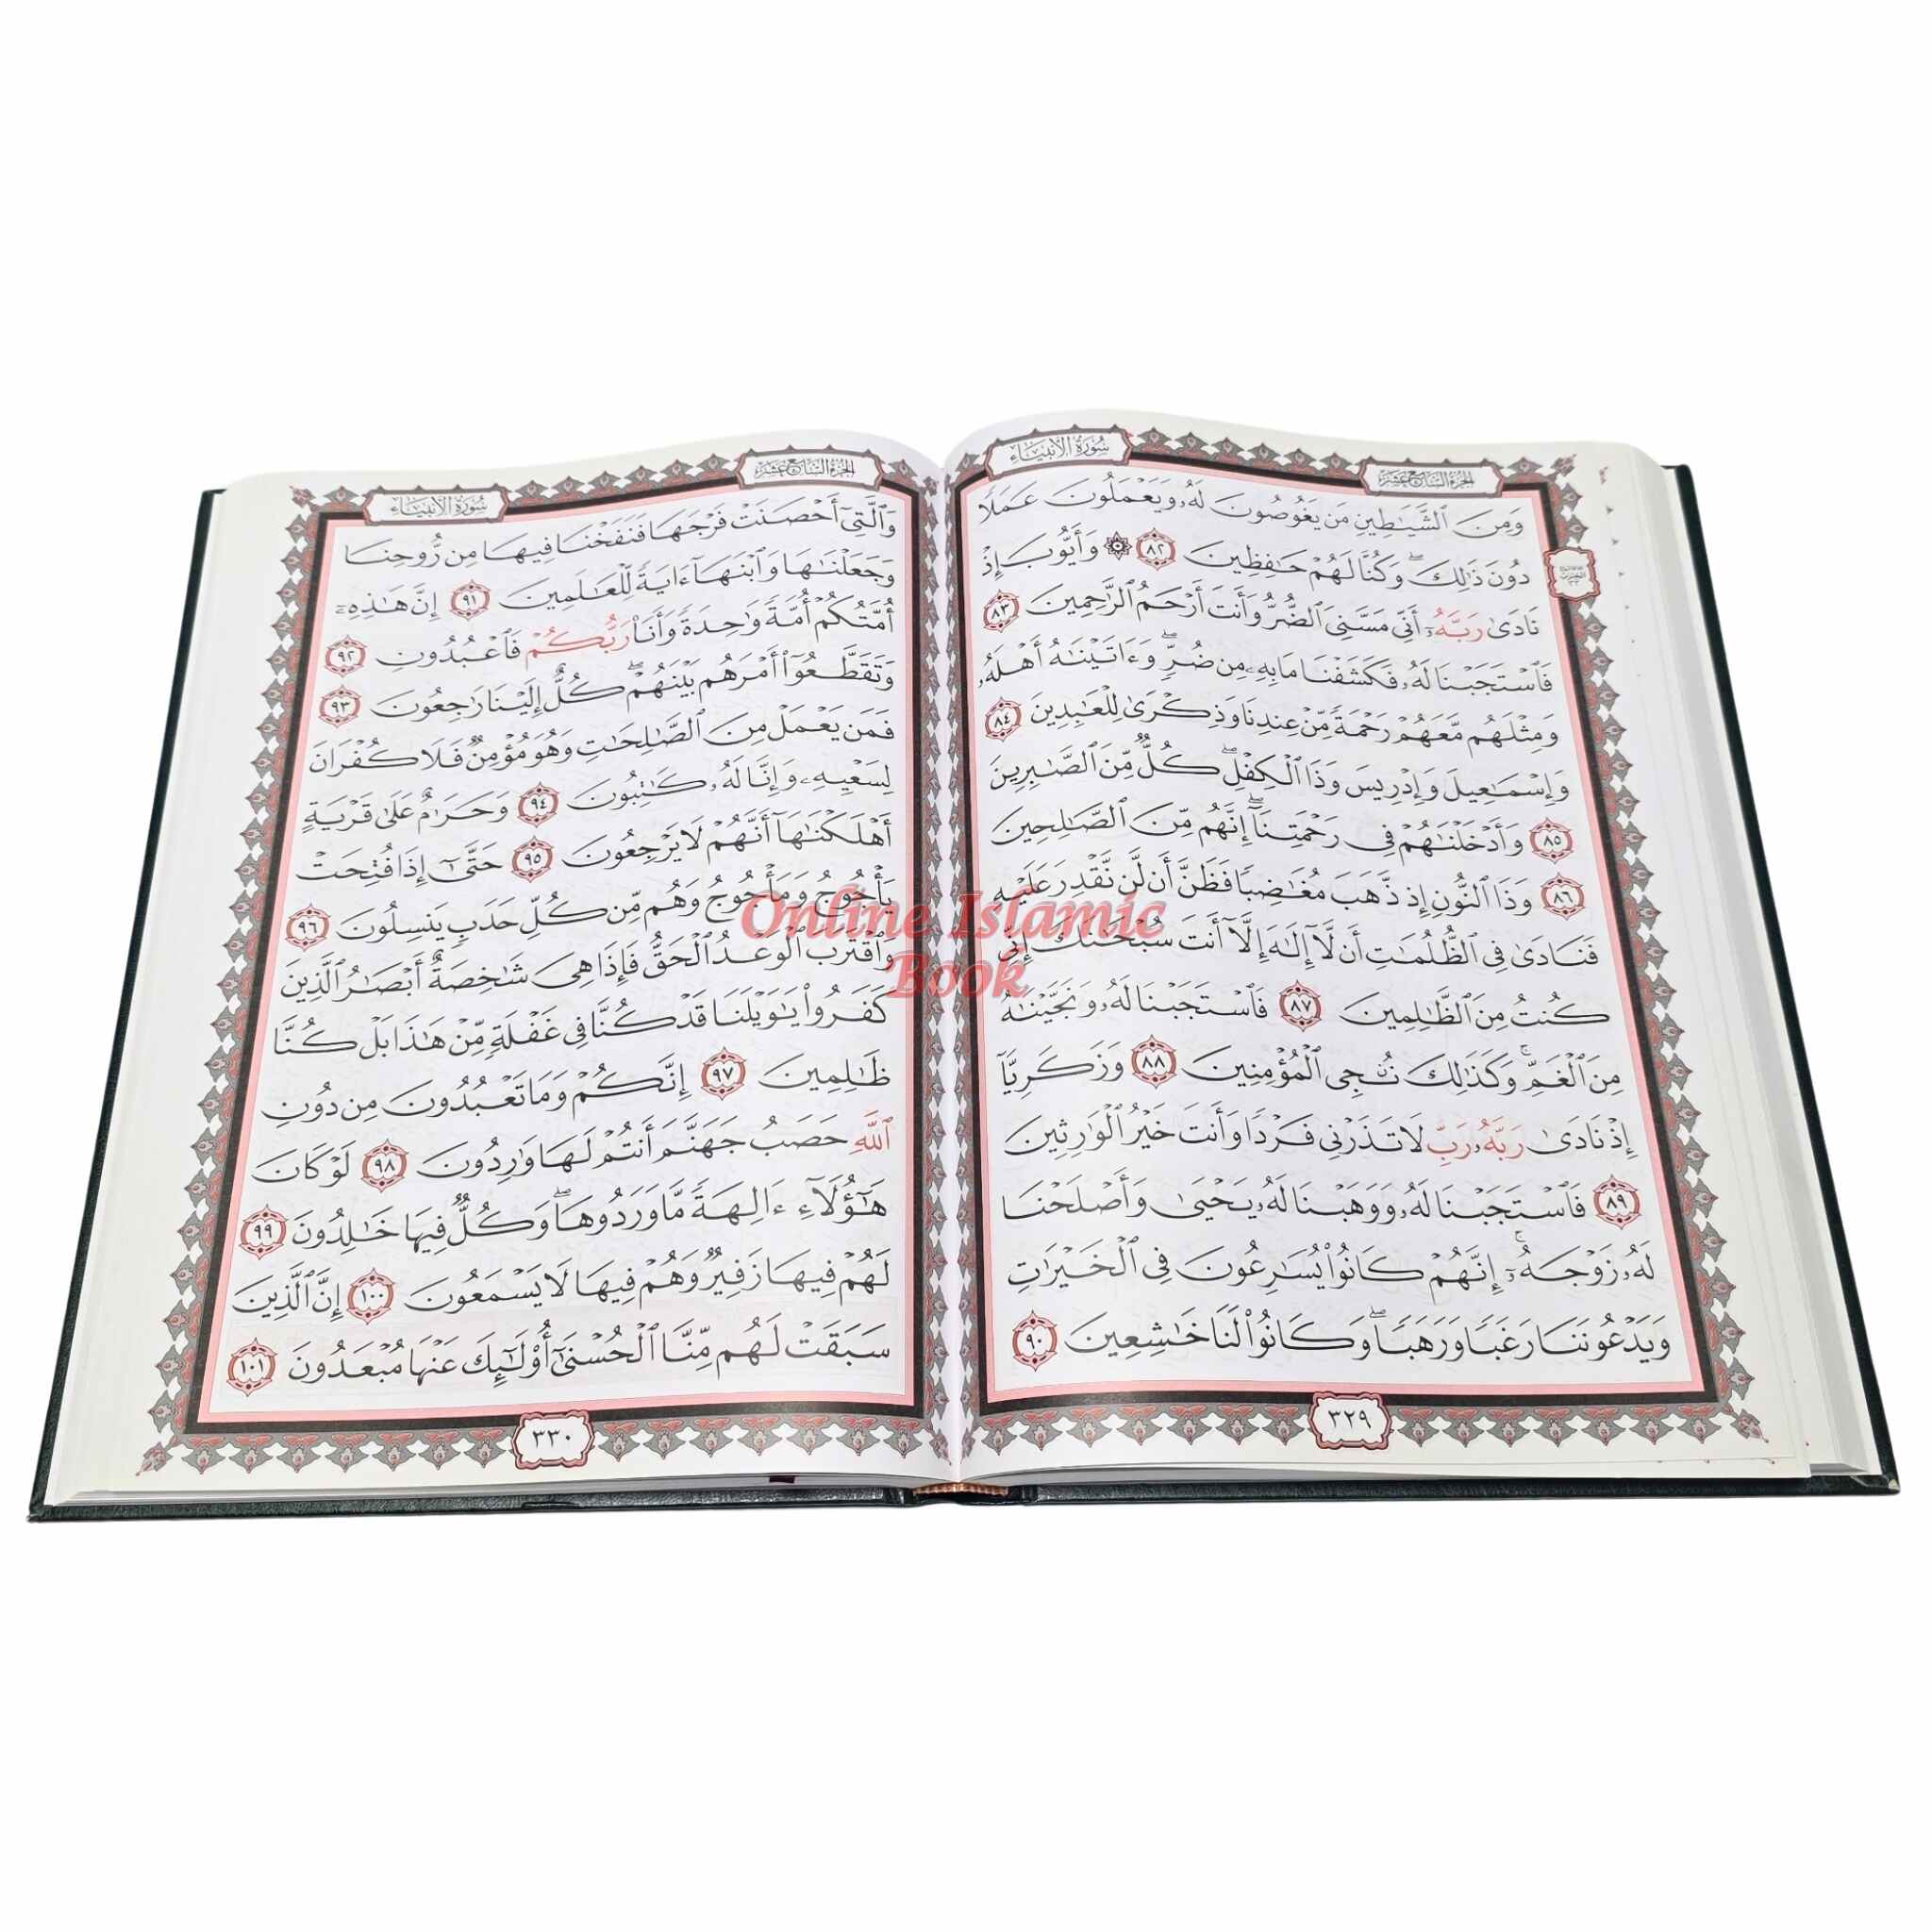 سُورَةُ الأَنبِيَاءِ
الجُزْءُ السَّابِعُ عَشَرَ
وَمِنَ ٱلشَّيَٰطِينِ مَن يَغُوصُونَ لَهُۥ وَيَعْمَلُونَ عَمَلًا
دُونَ ذَٰلِكَ ۖ وَكُنَّا لَهُمْ حَٰفِظِينَ ٨٢ ۞ وَأَيُّوبَ إِذْ
نَادَىٰ رَبَّهُۥٓ أَنِّى مَسَّنِىَ ٱلضُّرُّ وَأَنتَ أَرْحَمُ ٱلرَّٰحِمِينَ ٨٣
فَٱسْتَجَبْنَا لَهُۥ فَكَشَفْنَا مَا بِهِۦ مِن ضُرٍّ ۖ وَءَاتَيْنَٰهُ أَهْلَهُۥ
وَمِثْلَهُم مَّعَهُمْ رَحْمَةً مِّنْ عِندِنَا وَذِكْرَىٰ لِلْعَٰبِدِينَ ٨٤
وَإِسْمَٰعِيلَ وَإِدْرِيسَ وَذَا ٱلْكِفْلِ ۖ كُلٌّ مِّنَ ٱلصَّٰبِرِينَ
٨٥ وَأَدْخَلْنَٰهُمْ فِى رَحْمَتِنَآ ۖ إِنَّهُم مِّنَ ٱلصَّٰلِحِينَ
٨٦ وَذَا ٱلنُّونِ إِذ ذَّهَبَ مُغَٰضِبًا فَظَنَّ أَن لَّن نَّقْدِرَ عَلَيْهِ
فَنَادَىٰ فِى ٱلظُّلُمَٰتِ أَن لَّآ إِلَٰهَ إِلَّآ أَنتَ سُبْحَٰنَكَ إِنِّى
كُنتُ مِنَ ٱلظَّٰلِمِينَ ٨٧ فَٱسْتَجَبْنَا لَهُۥ وَنَجَّيْنَٰهُ
مِنَ ٱلْغَمِّ ۚ وَكَذَٰلِكَ نُۨجِى ٱلْمُؤْمِنِينَ ٨٨ وَزَكَرِيَّآ
إِذْ نَادَىٰ رَبَّهُۥ رَبِّ لَا تَذَرْنِى فَرْدًا وَأَنتَ خَيْرُ ٱلْوَٰرِثِينَ
٨٩ فَٱسْتَجَبْنَا لَهُۥ وَوَهَبْنَا لَهُۥ يَحْيَىٰ وَأَصْلَحْنَا
لَهُۥ زَوْجَهُۥٓ ۚ إِنَّهُمْ كَانُوا۟ يُسَٰرِعُونَ فِى ٱلْخَيْرَٰتِ
وَيَدْعُونَنَا رَغَبًا وَرَهَبًا ۖ وَكَانُوا۟ لَنَا خَٰشِعِينَ ٩٠
٣٢٩
الجُزْءُ السَّابِعُ عَشَرَ
سُورَةُ الأَنبِيَاءِ
وَٱلَّتِىٓ أَحْصَنَتْ فَرْجَهَا فَنَفَخْنَا فِيهَا مِن رُّوحِنَا
وَجَعَلْنَٰهَا وَٱبْنَهَآ ءَايَةً لِّلْعَٰلَمِينَ ٩١ إِنَّ هَٰذِهِۦٓ
أُمَّتُكُمْ أُمَّةً وَٰحِدَةً وَأَنَا۠ رَبُّكُمْ فَٱعْبُدُونِ ٩٢
وَتَقَطَّعُوٓا۟ أَمْرَهُم بَيْنَهُمْ ۖ كُلٌّ إِلَيْنَا رَٰجِعُونَ ٩٣
فَمَن يَعْمَلْ مِنَ ٱلصَّٰلِحَٰتِ وَهُوَ مُؤْمِنٌ فَلَا كُفْرَانَ
لِسَعْيِهِۦ وَإِنَّا لَهُۥ كَٰتِبُونَ ٩٤ وَحَرَٰمٌ عَلَىٰ قَرْيَةٍ
أَهْلَكْنَٰهَآ أَنَّهُمْ لَا يَرْجِعُونَ ٩٥ حَتَّىٰٓ إِذَا فُتِحَتْ
يَأْجُوجُ وَمَأْجُوجُ وَهُم مِّن كُلِّ حَدَبٍ يَنسِلُونَ ٩٦
وَٱقْتَرَبَ ٱلْوَعْدُ ٱلْحَقُّ فَإِذَا هِىَ شَٰخِصَةٌ أَبْصَٰرُ ٱلَّذِينَ
كَفَرُوا۟ يَٰوَيْلَنَا قَدْ كُنَّا فِى غَفْلَةٍ مِّنْ هَٰذَا بَلْ كُنَّا
ظَٰلِمِينَ ٩٧ إِنَّكُمْ وَمَا تَعْبُدُونَ مِن دُونِ
ٱللَّهِ حَصَبُ جَهَنَّمَ أَنتُمْ لَهَا وَٰرِدُونَ ٩٨ لَوْ كَانَ
هَٰٓؤُلَآءِ ءَالِهَةً مَّا وَرَدُوهَا ۖ وَكُلٌّ فِيهَا خَٰلِدُونَ ٩٩
لَهُمْ فِيهَا زَفِيرٌ وَهُمْ فِيهَا لَا يَسْمَعُونَ ١٠٠ إِنَّ ٱلَّذِينَ
سَبَقَتْ لَهُم مِّنَّا ٱلْحُسْنَىٰٓ أُو۟لَٰٓئِكَ عَنْهَا مُبْعَدُونَ ١٠١
٣٣٠
Online Islamic
Book